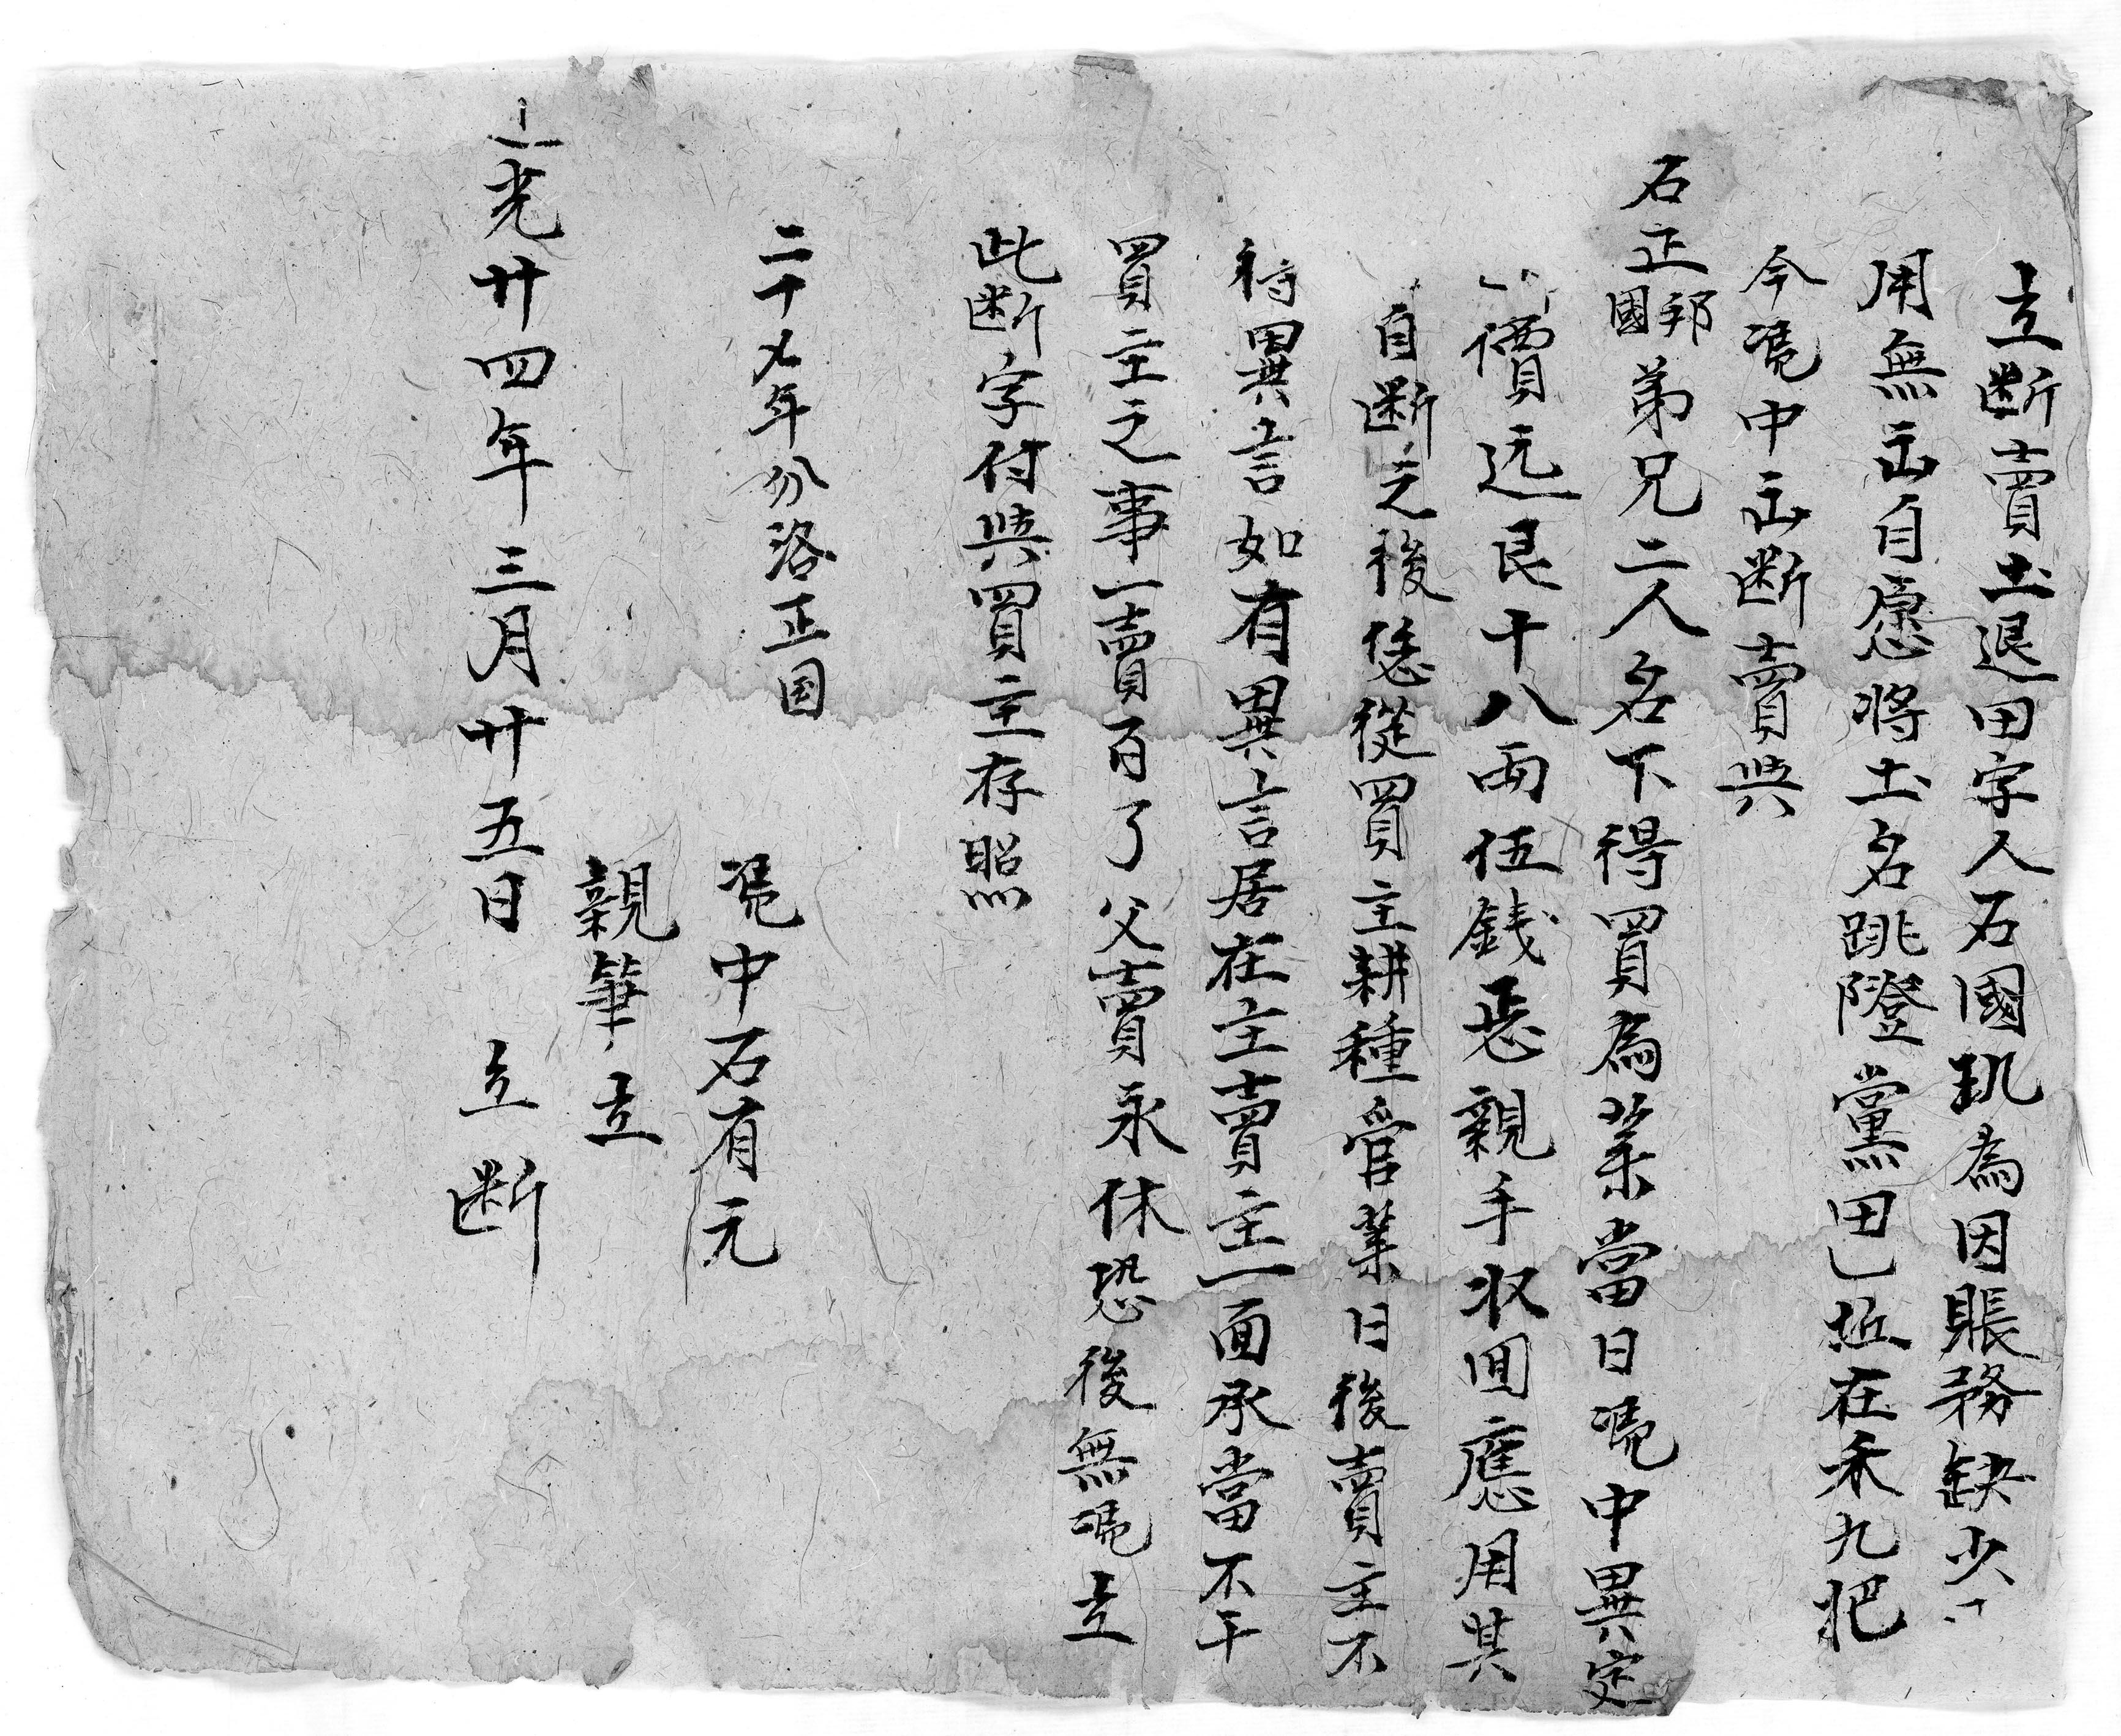 立断賣土退田字人石國玑為因賬務缺少
用無出自愿將土名跳隥黨田乚坵在禾九把
今凴中出断賣與
石正邦國弟兄二人名下得買為業當日凴中異定
價远艮十八両伍銭恁親手收囬應用其
自断之後恁從買主耕種管業日後賣主不
得異言如有異言居在主賣主一面承當不干
買主之事一賣百了父賣永休恐後無凴立
此断字付與買主存照
二十七年分洛正国
凴中石有元
親筆立
道光廿四年三月廿五日 立断